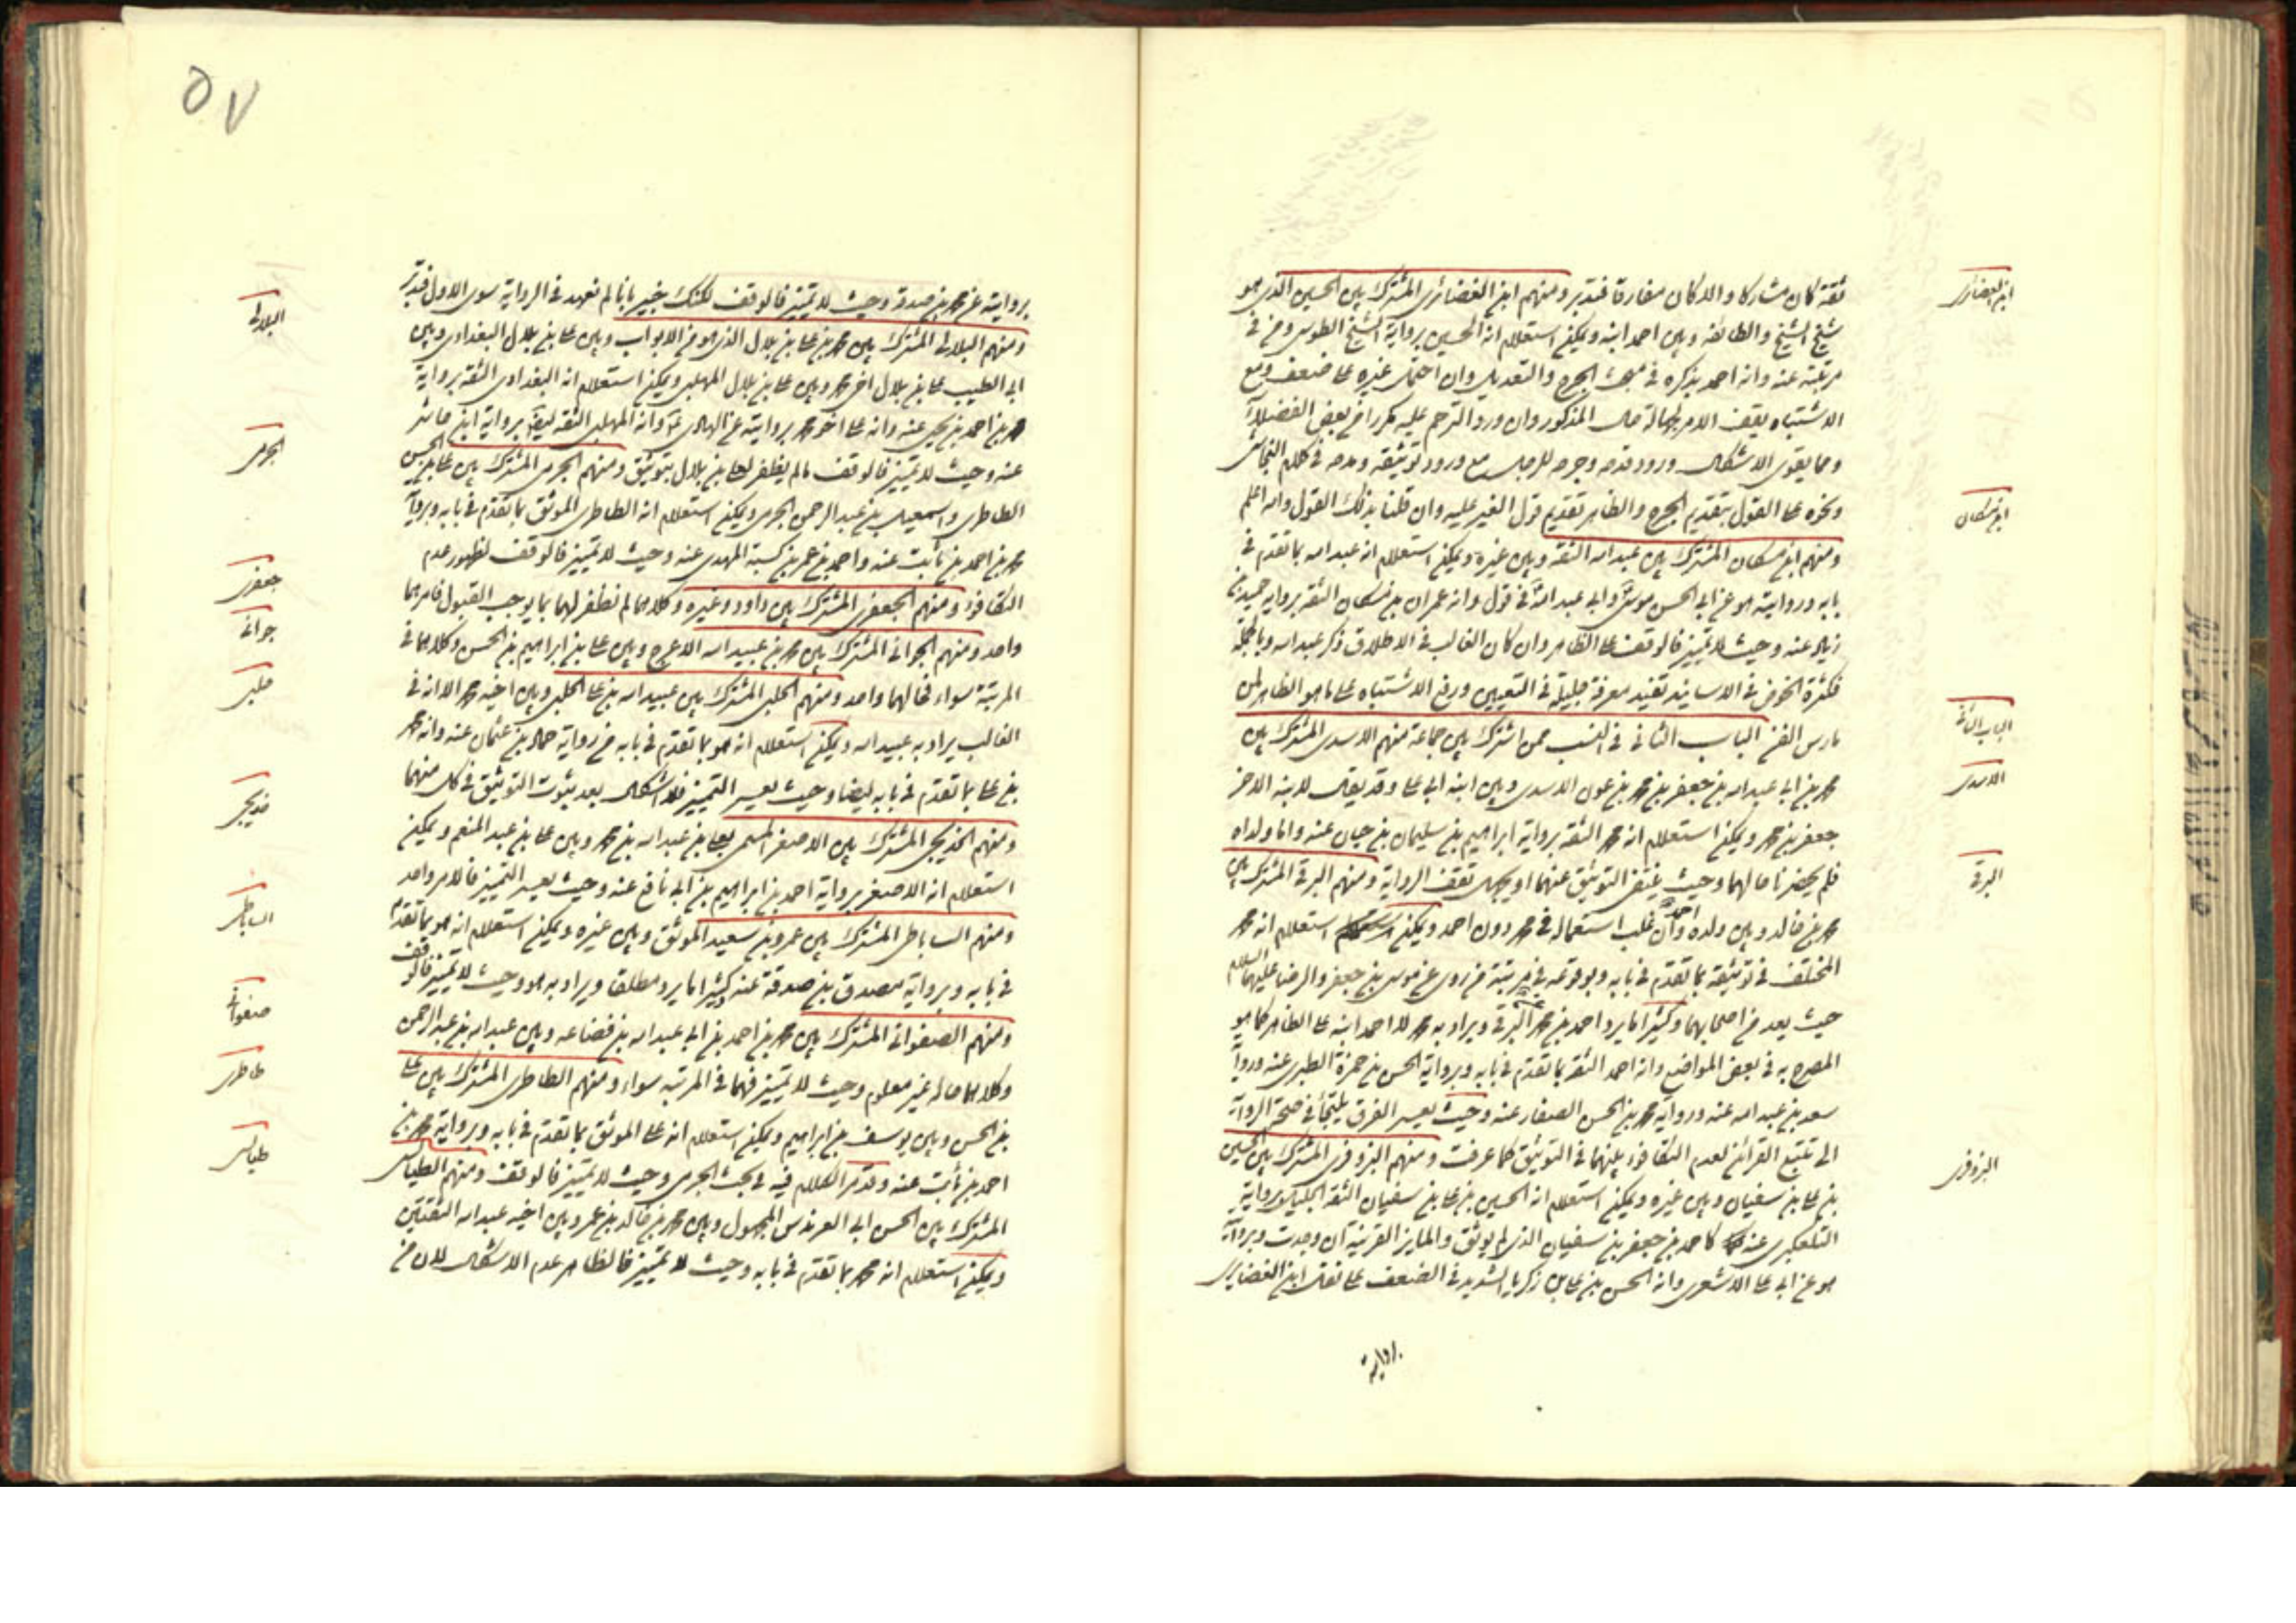 ابن الغضائري
ثقة كان مشاركا والا كان مفارقا فتدبر ومنهم ابن الغضائري المشترك بين الحسين الذي هو
شيخ الشيخ والطائفة وبين احمد ابنه ويمكن استعلام انه الحسين برواية الشيخ الطوسي ومن في
مرتبته عنه وانه احمد بذكره في مبحث الجرح والتعديل وان احتمل غيره على ضعف ومع
الاشتباه يقف الامر لجهالة حال المذكور وان ورد الترحم عليه مكررا من بعض الفضلاء
ومما يقوى الاشكال ورود قدحه وجرحه للرجل مع ورود توثيقه ومدحه في كلام النجاشي
ابن مسكان
ونحوه على القول بتقديم الجرح والظاهر تقديم قول الغير عليه وان قلنا بذلك القول والله اعلم
ومنهم ابن مسكان المشترك بين عبد الله الثقة وبين غيره ويمكن استعلام انه عبد الله بما تقدم في
بابه وروايته هو عن ابي الحسن موسى وابي عبد الله في قول وانه عمران بن مسكان الثقة برواية حميد بن
زياد عنه وحيث لا تميز فالوقف على الظاهر وان كان الغالب في الاطلاق ذكر عبد الله وبالجملة
فكثرة الخوض في الاسانيد تفيد معرفة جليلة في التعيين ورفع الاشتباه على ما هو الظاهر لمن
الباب الثاني
مارس الفن الباب الثاني في النسب ممن اشترك بين جماعة منهم الاسدي المشترك بين
الاسدي
محمد بن ابي عبد الله بن جعفر بن محمد بن عون الاسدي وبين ابنه ابي على وقد يقال لابنه الاخر
جعفر بن محمد ويمكن استعلام انه محمد الثقة برواية ابراهيم بن سليمان بن حيان عنه واما ولداه
البرقي
فلم يحضرنا حالهما وحيث ينتفى التوثيق عنهما او يجهل تقف الرواية ومنهم البرقي المشترك بين
محمد بن خالد وبين ولده احمد وان غلب استعماله في محمد دون احمد ويمكن استعلام انه محمد
المختلف في توثيقه بما تقدم في بابه وبوقوعه في مرتبة من روى عن موسى بن جعفر والرضا عليهما السلام
حيث يعد من اصحابهما وكثيرا ما يرد احمد بن محمد البرقي ويراد به محمد لا احمد ابنه على الظاهر كما هو
المصرح به في بعض المواضع وانه احمد الثقة بما تقدم في بابه وبرواية الحسن بن حمزة الطبري عنه ورواية
سعد بن عبد الله عنه ورواية محمد بن الحسن الصفار عنه وحيث يعسر الفرق يلتجأ في صحة الرواية
البزوفري
الى تتبع القرائن لعدم التكافؤ بينهما في التوثيق كما عرفت ومنهم البزوفري المشترك بين الحسين
بن على بن سفيان وبين غيره ويمكن استعلام انه الحسين بن على بن سفيان الثقة الجليل برواية
التلعكبري عنه كاحمد بن جعفر بن سفيان الذي لم يوثق والمايز القرينة ان وجدت وبرواية
هو عن ابي على الاشعري وانه الحسن بن على بن زكريا الشديد في الضعف على نقل ابن الغضايري
برواية
٥٧
بروايته عن محمد بن صدقة وحيث لا تميز فالوقف لكنك خبير بانا لم نعهد في الرواية سوى الاول فتدبر
البلالي
ومنهم البلالي المشترك بين محمد بن على بن بلال الذي هو من الابواب وبين على بن بلال البغدادي وبين
ابي الطيب على بن بلال اخي محمد وبين على بن بلال المهلبي ويمكن استعلام انه البغدادي الثقة برواية
محمد بن احمد بن يحيى عنه وانه على اخو محمد بروايته عن الهادي وانه المهلبي الثقة برواية ابن حاشر
الجرمي
عنه وحيث لا تميز فالوقف مالم يظفر لعلى بن بلال بتوثيق ومنهم الجرمي المشترك بين على بن الحسن
الطاطري واسمعيل بن عبد الرحمن الجرمي ويمكن استعلام انه الطاطري الموثق بما تقدم في بابه وبرواية
محمد بن احمد بن ثابت عنه واحمد بن عمر بن كسبة المهدي عنه وحيث لا تميز فالوقف لظهور عدم
جعفري
التكافؤ ومنهم الجعفري المشترك بين داود وغيره وكلاهما لم نظفر لهما بما يوجب القبول فامرهما
جواني
واحد ومنهم الجواني المشترك بين محمد بن عبيد الله الاعرج وبين على بن ابراهيم بن الحسن وكلاهما في
حلبي
المرتبة سواء فحالهما واحد ومنهم الحلبي المشترك بين عبيد الله بن على الحلبي وبين اخيه محمد الا انه في
الغالب يراد به عبيد الله ويمكن استعلام انه هو بما تقدم في بابه من رواية حماد بن عثمان عنه وانه محمد
بن على بما تقدم في بابه ايضا وحيث يعسر التميز فلا اشكال بعد ثبوت التوثيق في كل منهما
خديجي
ومنهم الخديجي المشترك بين الاصغر المسمى بعلى بن عبد الله بن محمد وبين على بن عبد المنعم ويمكن
استعلام انه الاصغر برواية احمد بن ابراهيم بن ابي نافع عنه وحيث يعسر التميز فالامر واحد
الساباطي
ومنهم الساباطي المشترك بين عمرو بن سعيد الموثق وبين غيره ويمكن استعلام انه هو بما تقدم
في بابه وبرواية مصدق بن صدقة عنه وكثيرا ما يرد مطلقا ويراد به هو وحيث لا تميز فالوقف
صفواني
ومنهم الصفواني المشترك بين محمد بن احمد بن ابي عبد الله بن قضاعه وبين عبد الله بن عبد الرحمن
طاطري
وكلاهما حاله غير معلوم وحيث لا تميز فهما في المرتبه سواء ومنهم الطاطري المشترك بين على
بن الحسن وبين يوسف بن ابراهيم ويمكن استعلام انه على الموثق بما تقدم في بابه وبرواية محمد بن
طيالسي
احمد بن ثابت عنه وقد مر الكلام فيه في بحث الجرمي وحيث لا تميز فالوقف ومنهم الطيالسي
المشترك بين الحسن ابي العرندس المجهول وبين محمد بن خالد بن عمر وبين اخيه عبد الله الثقتين
ويمكن استعلام انه محمد بما تقدم في بابه وحيث لا تميز فالظاهر عدم الاشكال لان من